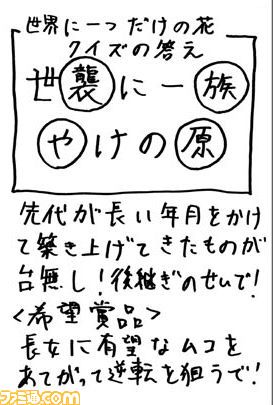 世界に一つだけの花
クイズの答え
世襲に一族
やけの原
先代が長い年月をかけ
て築き上げてきたものが
台無し！後継ぎのせいで！
<希望賞品>
長女に有望なムコを
あてがって逆転を狙うで！
ファミ通.com